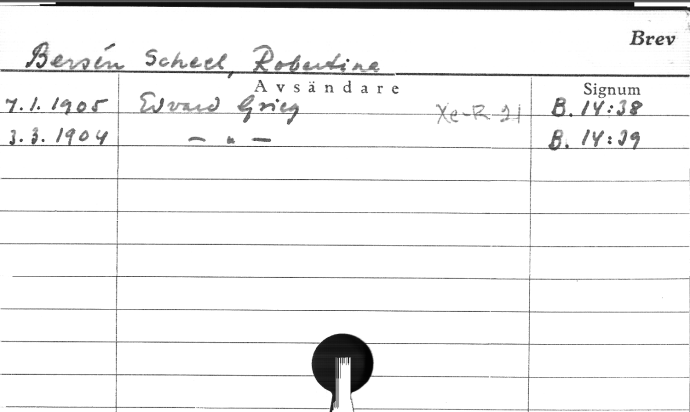 Brev
Bersén Scheel, Robertina
Avsändare Signum
7.1.1905 Edvard Grieg Xe-R 21 B. 14:38
3.3.1904 — " — B. 14:39